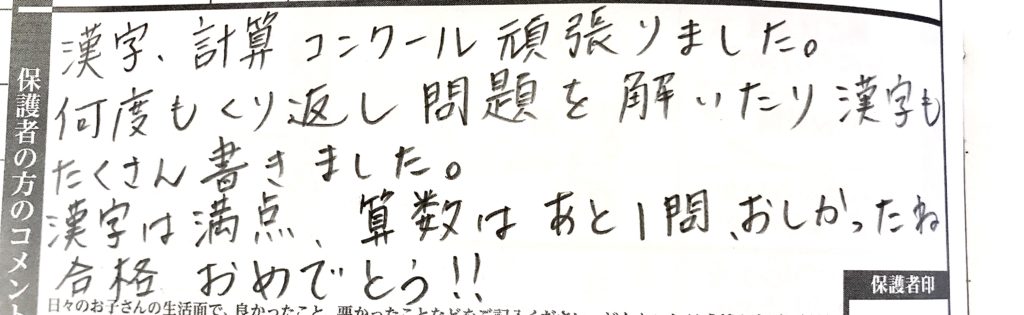 保護者の方のコメント
漢字、計算コンクール頑張りました。
何度もくり返し問題を解いたり漢字も
たくさん書きました。
漢字は満点、算数はあと1問、おしかったね
合格 おめでとう!!
保護者印
日々のお子さんの生活面で、良かったこと、悪かったことなどをご記入ください。